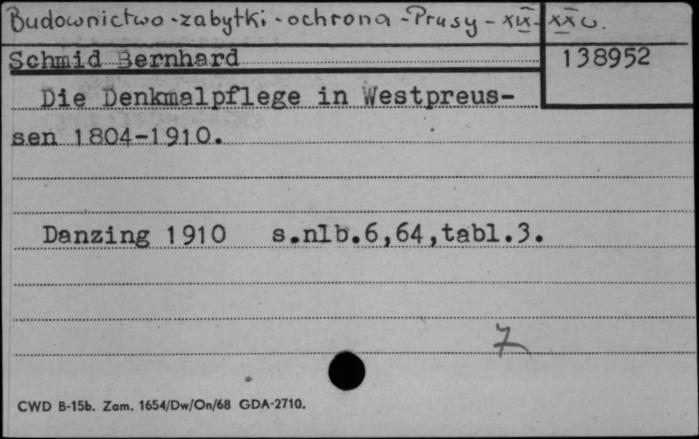 Budownictwo - zabytki - ochrona - Prusy - XIX - XX w.
Schmid Bernhard
138952
Die Denkmalpflege in Westpreus-
sen 1804-1910.
Danzing 1910 s.nlb.6,64,tabl.3.
7
CWD B-15b. Zam. 1654/Dw/On/68 GDA-2710.